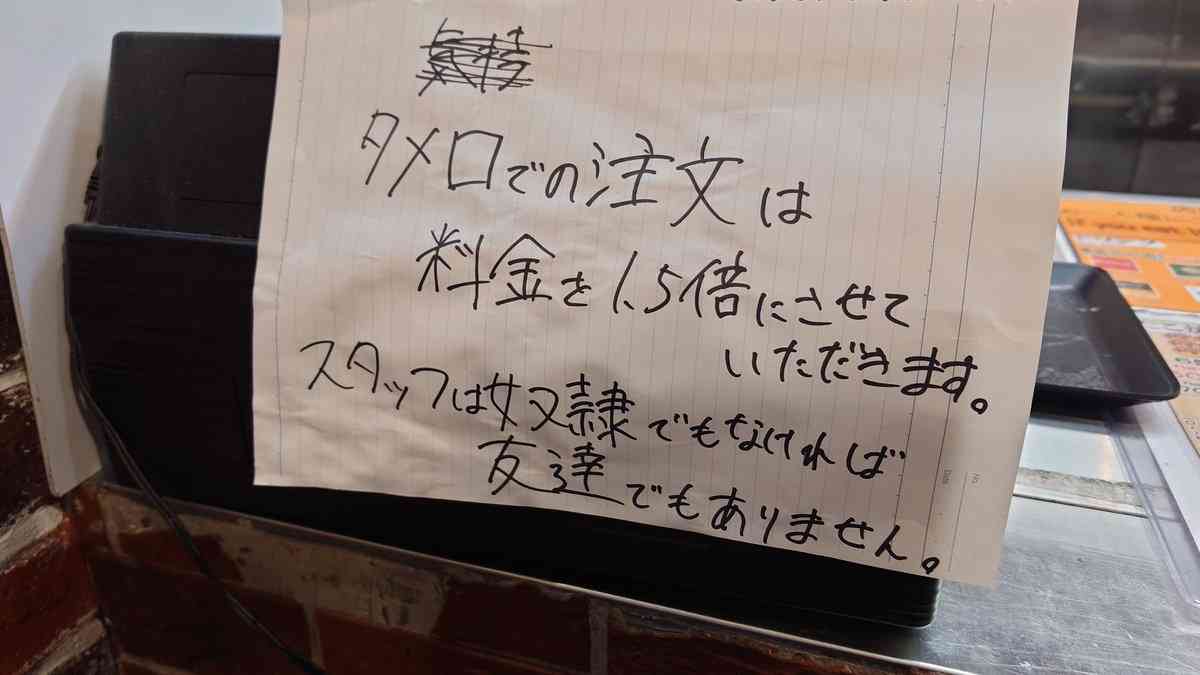 タメ口での注文は
料金を1.5倍にさせて
いただきます。
スタッフは奴隷でもなければ
友達でもありません。